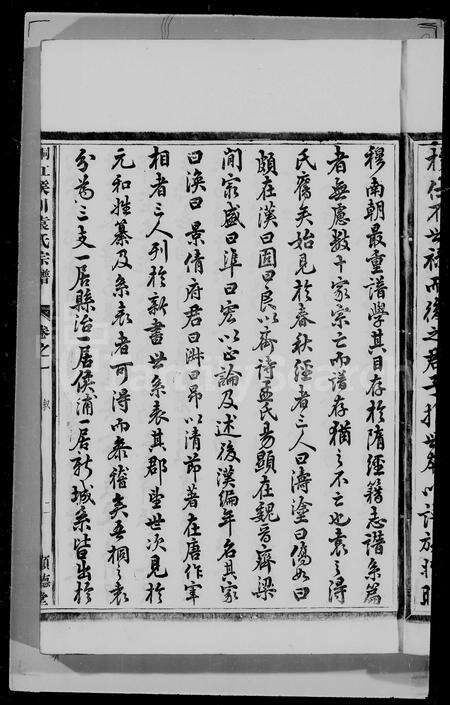 穆南朝最重譜學其目存於隋經籍志譜系篇
者無慮數十家宗亡而譜存猶之不亡也袁之得
氏舊矣始見於春秋經者三人曰濤塗曰僑如曰
頗在漢曰固曰良以齋詩孟氏易顯在魏晉齊梁
間家盛曰準曰宏以正論及述後漢編年名其家
曰渙曰景倩府君曰淑曰昂以清節著在唐作宰
相者三人列於新書世系表其郡望世次見於
元和姓纂及系表者可得而叅稽矣吾桐之袁
分為三支一居縣治一居侯浦一居新城系皆出於
桐江 川袁氏宗譜
卷之一
敘
二